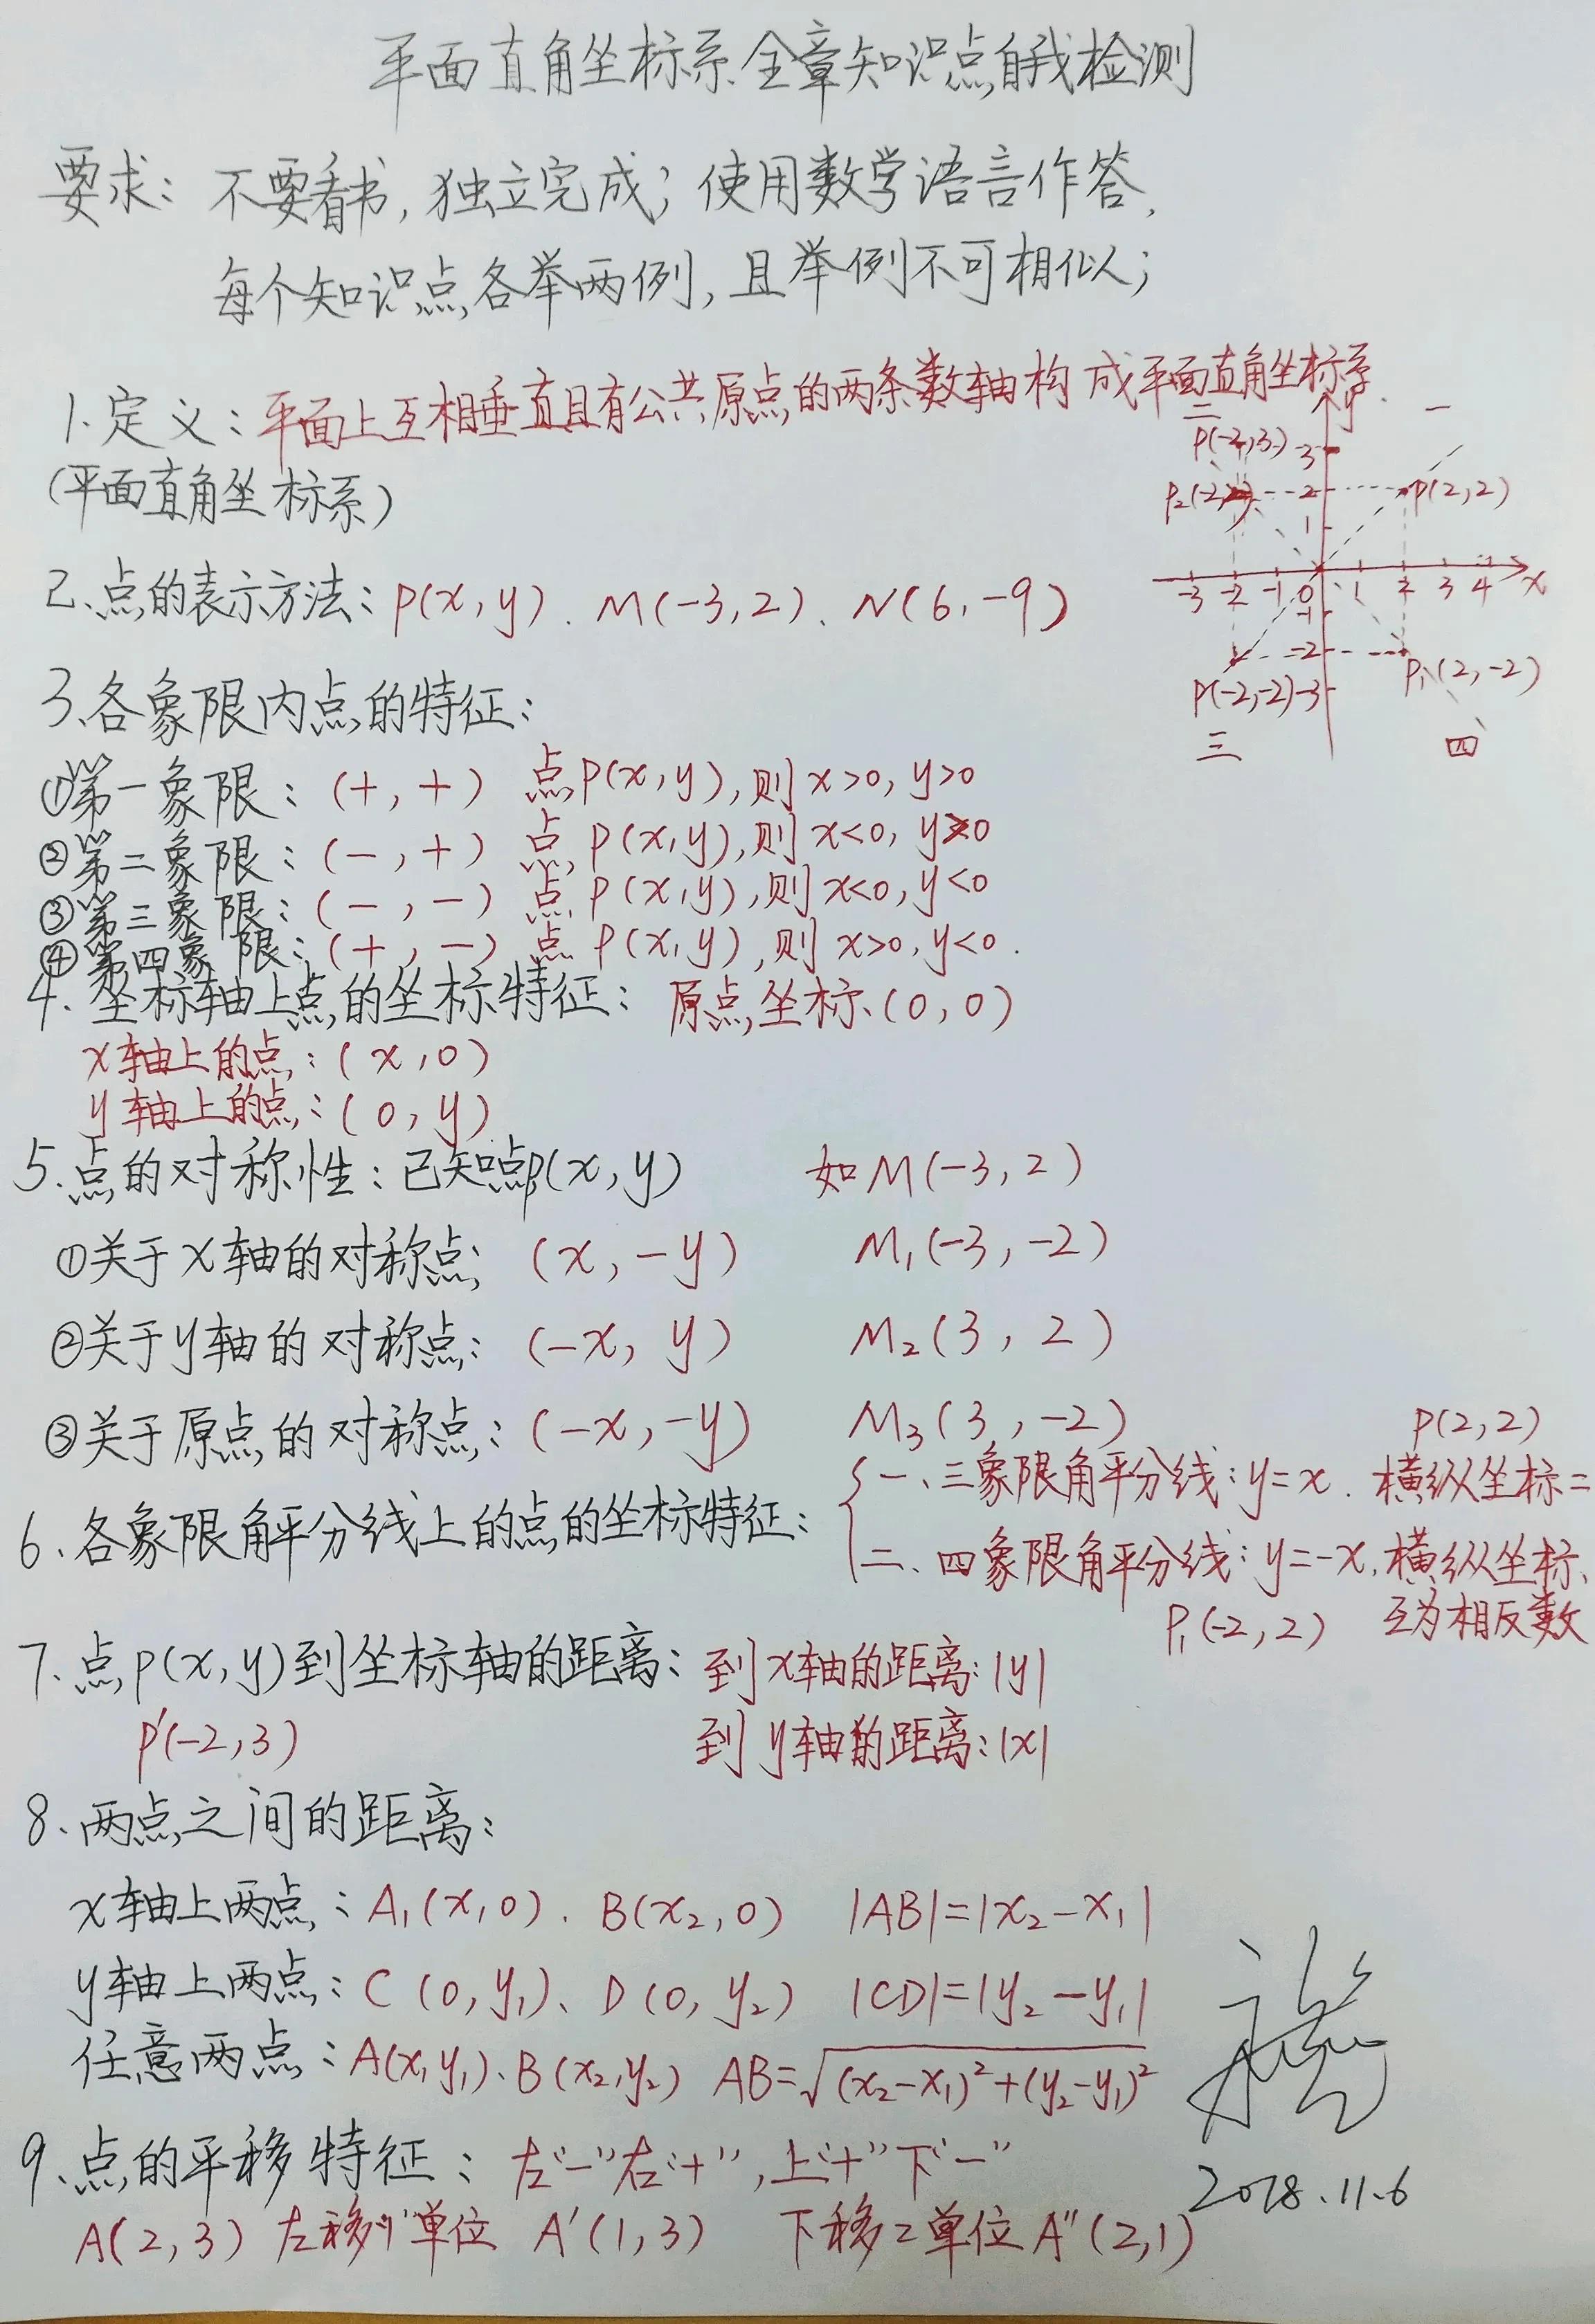 平面直角坐标系全章知识点自我检测
要求：不要看书，独立完成；使用数学语言作答，
每个知识点各举两例，且举例不可相似；
1.定义：平面上互相垂直且有公共原点的两条数轴构成平面直角坐标系.
(平面直角坐标系)
二 y 一
P(-2,3) 3
P₂(-2,2) 2 P(2,2)
1
-3 -2 -1 0 1 2 3 4 x
-1
-2
P(-2,-2) -3 P₁(2,-2)
三 四
2、点的表示方法：P(x,y)、M(-3,2)、N(6,-9)
3、各象限内点的特征：
①第一象限：(+,+) 点P(x,y),则x>0,y>0
②第二象限：(-,+) 点P(x,y),则x<0,y>0
③第三象限：(-,-) 点P(x,y),则x<0,y<0
④第四象限：(+,-) 点P(x,y),则x>0,y<0.
4.坐标轴上点的坐标特征：原点坐标(0,0)
x轴上的点：(x,0)
y轴上的点：(0,y)
5.点的对称性：已知点P(x,y) 如M(-3,2)
①关于x轴的对称点：(x,-y) M₁(-3,-2)
②关于y轴的对称点：(-x,y) M₂(3,2)
③关于原点的对称点：(-x,-y) M₃(3,-2) P(2,2)
6、各象限角平分线上的点的坐标特征：
一、三象限角平分线：y=x.横纵坐标=
二、四象限角平分线：y=-x,横纵坐标
P₁(-2,2) 互为相反数
7、点P(x,y)到坐标轴的距离：到x轴的距离：|y|
P'(-2,3) 到y轴的距离：|x|
8、两点之间的距离：
x轴上两点：A₁(x,0)、B(x₂,0) |AB|=|x₂-x₁|
y轴上两点：C(0,y₁)、D(0,y₂) |CD|=|y₂-y₁|
任意两点：A(x,y₁)、B(x₂,y₂) AB=√(x₂-x₁)²+(y₂-y₁)²
9、点的平移特征：左“-”右“+”,上“+”下“-”
2018.11.6
A(2,3) 左移“1”单位 A'(1,3) 下移2单位A"(2,1)